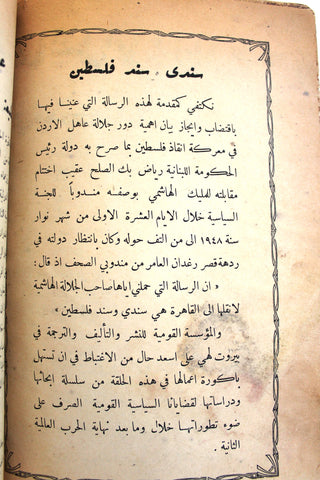 سندي . سند فلسطين
نكتفي كمقدمة لهذه الرسالة التي عنينا فيها
باقتضاب وايجاز بيان اهمية دور جلالة عاهل الاردن
في معركة انقاذ فلسطين بما صرح به دولة رئيس
الحكومة اللبنانية رياض بك الصلح عقيب اختتام
مقابلته للمليك الهاشمي بوصفه مندوباً للجنة
السياسية خلال الايام العشرة الاولى من شهر نوار
سنة ١٩٤٨ الى من التف حوله وكان بانتظار دولته في
ردهة قصر رغدان العامر من مندوبي الصحف اذ قال:
« ان الرسالة التي حملني اياها صاحب الجلالة الهاشمية
لانقلها الى القاهرة هي سندي وسند فلسطين »
والمؤسسة القومية للنشر والتأليف والترجمة في
بيروت لهي على اسعد حال من الاغتباط في ان تستهل
باكورة اعمالها في هذه الحلقة من سلسلة ابحاثها
ودراساتها لقضايانا السياسية القومية الصرف على
ضوء تطوراتها خلال وما بعد نهاية الحرب العالمية
الثانية .